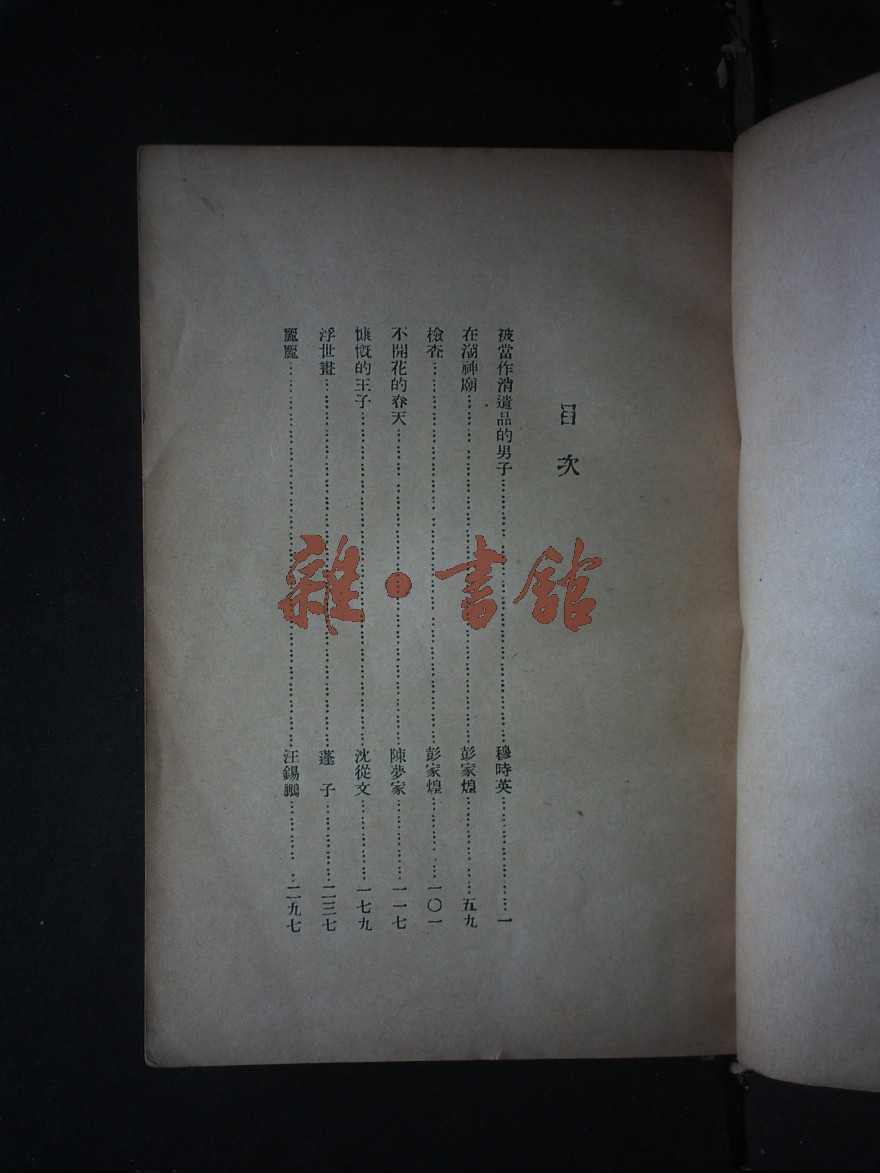 目次
被當作消遣品的男子……穆時英……一
在潮神廟……彭家煌……五九
檢査……彭家煌……一〇一
不開花的春天……陳夢家……一一七
慷慨的王子……沈從文……一七九
浮世畫……蓬子……二三七
麗麗……汪錫鵬……二九七
雜·書館